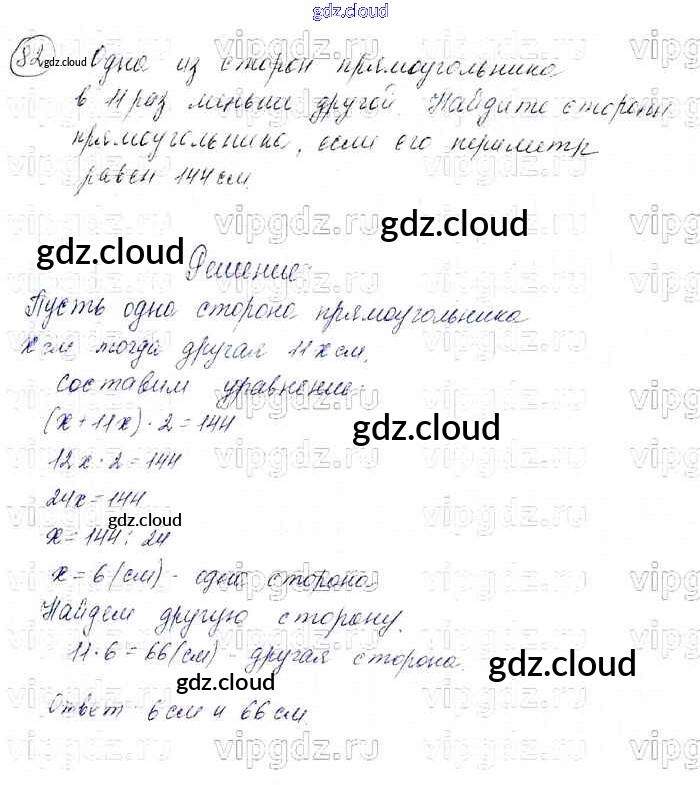 gdz.cloud
82 gdz.cloud Одна из сторон прямоугольника
в 11 раз меньше другой. Найдите стороны
прямоугольника, если его периметр
равен 144 см
gdz.cloud
gdz.cloud
Решение:
Пусть одна сторона прямоугольника
x см тогда другая 11x см,
составим уравнение:
(x+11x)·2=144
gdz.cloud
12x·2=144
24x=144
gdz.cloud
x=144:24
x=6(см) - одна сторона.
Найдем другую сторону.
11·6=66(см) - другая сторона.
gdz.cloud
gdz.cloud
Ответ 6 см и 66 см.
vipgdz.ru